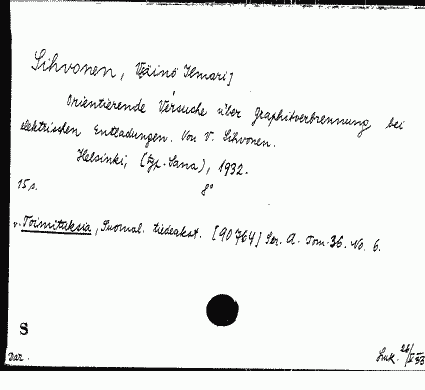 Sihvonen, V[äinö Ilmari]
Orientierende Versuche über Graphitverbrennung bei
elektrischen Entladungen. Von V. Sihvonen.
Helsinki, (typ. Sana), 1932.
15 s. 8°
v. Toimituksia, Suomal. tiedeakat. [90764] Ser. A. Tom. 36. No. 6.
S
Dar.
Luk. 26/V 33